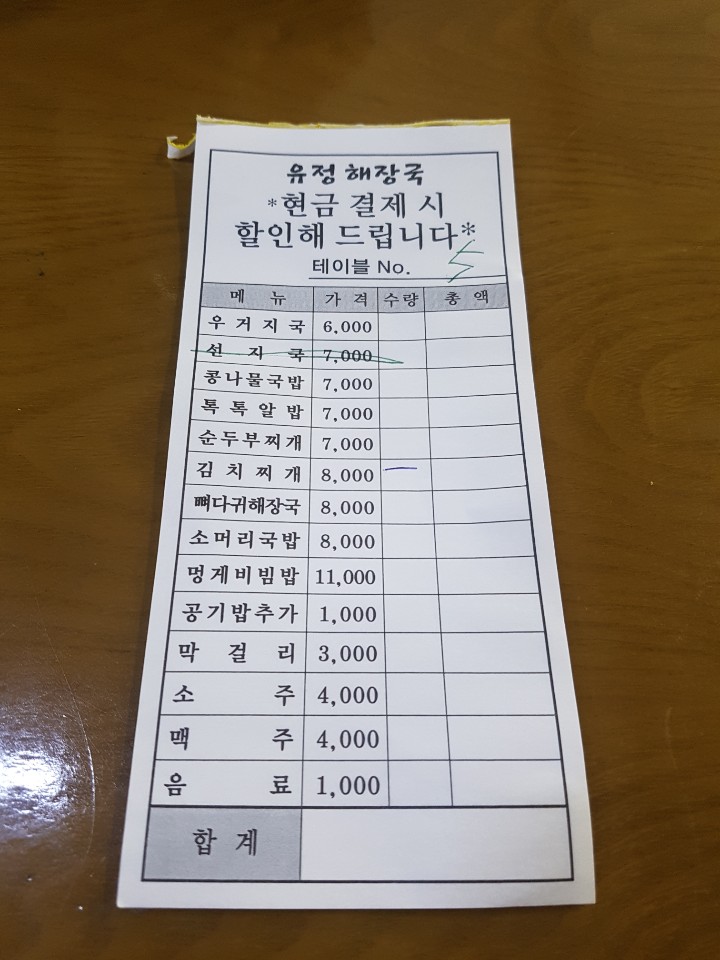 유정 해장국
*현금 결제 시
할인해 드립니다*
테이블 No. 5
메 뉴 가 격 수량 총 액
우 거 지 국 6,000
선 지 국 7,000
콩나물국밥 7,000
톡 톡 알 밥 7,000
순두부찌개 7,000
김 치 찌 개 8,000 一
뼈다귀해장국 8,000
소머리국밥 8,000
멍게비빔밥 11,000
공기밥추가 1,000
막 걸 리 3,000
소 주 4,000
맥 주 4,000
음 료 1,000
합 계